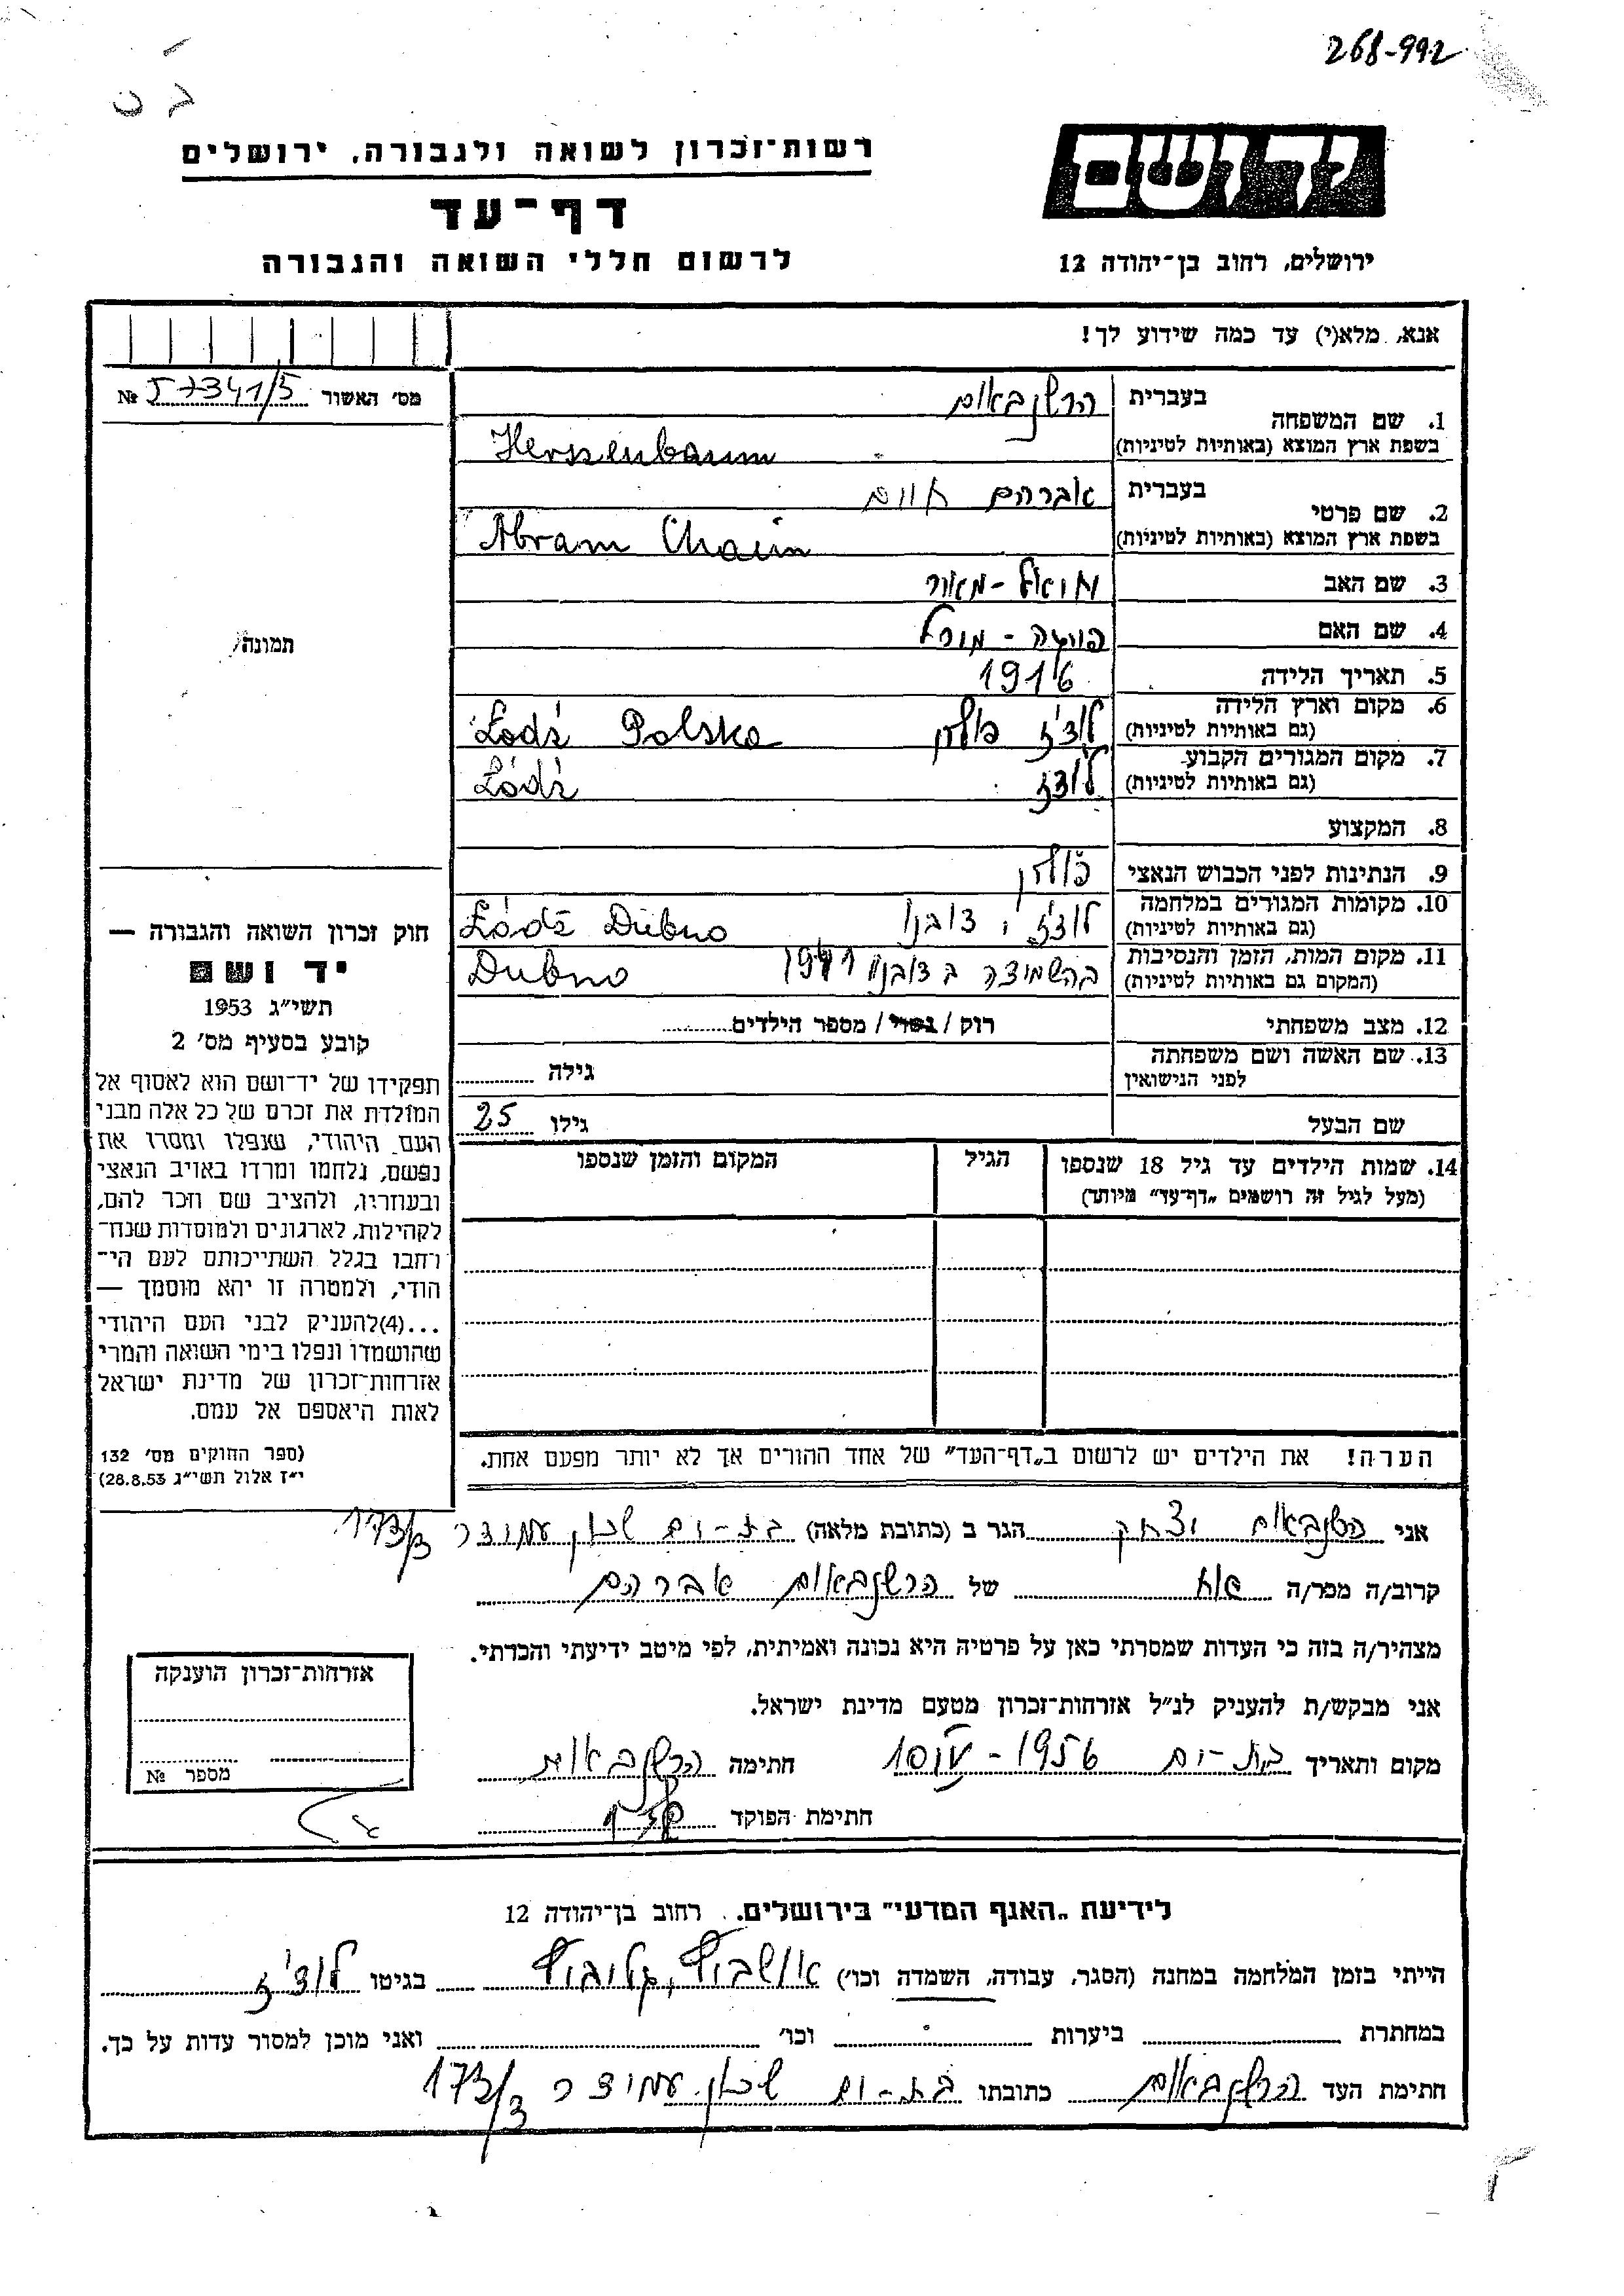 268-992
רשות־זכרון לשואה ולגבורה, ירושלים
יד ושם
דף־עד
לרשום חללי השואה והגבורה
ירושלים, רחוב בן־יהודה 12
אנא, מלא(י) עד כמה שידוע לך!
מס׳ האשור 57341/5 №
1. שם המשפחה בעברית הרשנבאום
בשפת ארץ המוצא (באותיות לטיניות) Herszenbaum
2. שם פרטי בעברית אברהם חיים
בשפת ארץ המוצא (באותיות לטיניות) Abram Chaim
3. שם האב
4. שם האם
5. תאריך הלידה 1916
6. מקום וארץ הלידה (גם באותיות לטיניות) לודז׳ פולין Łodź Polska
7. מקום המגורים הקבוע (גם באותיות לטיניות) לודז Łódź
8. המקצוע
9. הנתינות לפני הכבוש הנאצי פולין
10. מקומות המגורים במלחמה (גם באותיות לטיניות) Łódź Dubno
11. מקום המות, הזמן והנסיבות (המקום גם באותיות לטיניות) 1941 Dubno
12. מצב משפחתי רוק / נשוי / מספר הילדים
13. שם האשה ושם משפחתה לפני הנישואין גילה
שם הבעל גילו 25
14. שמות הילדים עד גיל 18 שנספו הגיל המקום והזמן שנספו
(מעל לגיל זה רושמים „דף־עד” מיוחד)
תמונה
חוק זכרון השואה והגבורה —
יד ושם
תשי״ג 1953
קובע בסעיף מס׳ 2
תפקידו של יד־ושם הוא לאסוף אל
המולדת את זכרם של כל אלה מבני
העם היהודי, שנפלו ומסרו את
נפשם, נלחמו ומרדו באויב הנאצי
ובעוזריו, ולהציב שם וזכר להם,
לקהילות, לארגונים ולמוסדות שנח־
רחבו בגלל השתייכותם לעם הי־
הודי, ולמטרה זו יהא מוסמך —
...(4)להעניק לבני העם היהודי
שהושמדו ונפלו בימי השואה והמרי
אזרחות־זכרון של מדינת ישראל
לאות היאספם אל עמם.
(ספר החוקים מס׳ 132
י״ז אלול תשי״ג 28.8.53)
הערה! את הילדים יש לרשום ב„דף־העד” של אחד ההורים אך לא יותר מפעם אחת.
אני הרשנבאום יצחק הגר ב (כתובת מלאה) בת-ים שכון עמידר 173/3
קרוב/ה מכר/ה אח של הרשנבאום אברהם
מצהיר/ה בזה כי העדות שמסרתי כאן על פרטיה היא נכונה ואמיתית, לפי מיטב ידיעתי והכרתי.
אני מבקש/ת להעניק לנ״ל אזרחות־זכרון מטעם מדינת ישראל.
מקום ותאריך בת-ים 1956 חתימה הרשנבאום
חתימת הפוקד
אזרחות־זכרון הוענקה
מספר №
לידיעת „האגף המדעי” בירושלים, רחוב בן־יהודה 12
הייתי בזמן המלחמה במחנה (הסגר, עבודה, השמדה וכו׳) בגיטו לודז׳
במחתרת ביערות וכו׳ ואני מוכן למסור עדות על כך.
חתימת העד הרשנבאום כתובתו בת-ים שכון עמידר 173/3